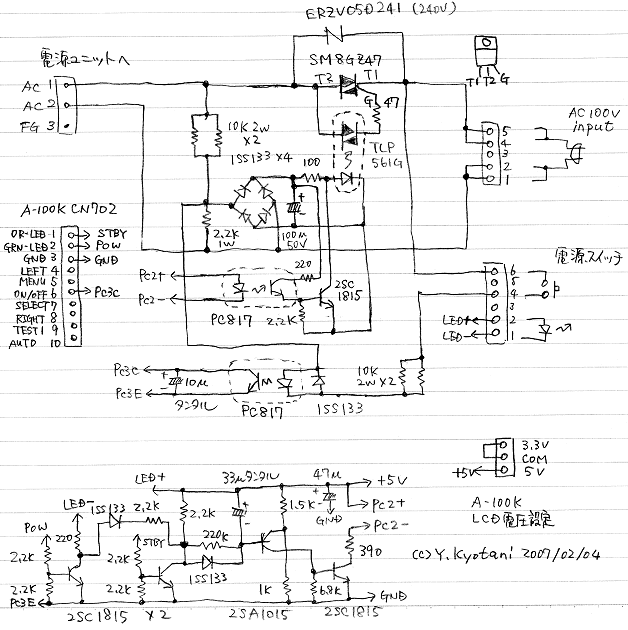 ERZV05D241 (240V)
電源ユニットへ
SM8GZ47
T2
T1
AC 1
AC 2
FG 3
G
47
T1 T2 G
AC100V
input
10K 2W
×2
TLP
561G
5
4
3
2
1
1SS133 ×4
100
+
-
100μ
50V
2.2K
1W
A-100K CN702
OR-LED 1
STBY
GRN-LED 2
POW
GND 3
GND
LEFT 4
MENU 5
ON/OFF 6
PC3C
SELECT 7
RIGHT 8
TEST1 9
AUTO 10
220
PC2+
PC2-
2SC
1815
PC817
2.2K
電源スイッチ
6
5
4
3
2
1
LED+
LED-
PC3C
PC3E
+
-
10μ
タンタル
PC817
1SS133
10K
2W×2
3.3V
COM
5V
+5V
A-100K
LCD電圧設定
LED+
33μタンタル
47μ
+5V
LED-
1SS133
2.2K
2.2K
1.5K
GND
PC2+
PC2-
POW
220
STBY
220K
390
2.2K
2.2K
1SS133
2.2K
2.2K
1K
6.8K
PC3E
GND
2SC1815 ×2
2SA1015
2SC1815
(C)Y.Kyotani 2007/02/04